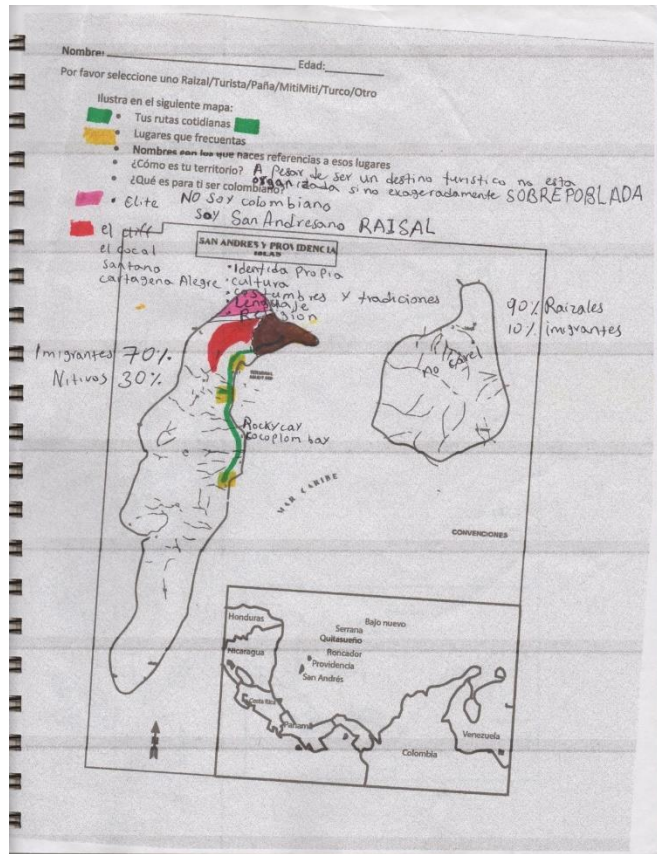 Nombre: Edad:
Por favor seleccione uno Raizal/Turista/Paña/MitiMiti/Turco/Otro
Ilustra en el siguiente mapa:
• Tus rutas cotidianas
• Lugares que frecuentas
• Nombres con los que haces referencias a esos lugares
• ¿Cómo es tu territorio? A pesar de ser un destino turistico no esta
organizada si no exageradamente SOBREPOBLADA
• ¿Qué es para ti ser colombiano?
• Elite NO Soy colombiano
Soy San Andresano RAISAL
el cliff
el cocal
Santano
cartagena Alegre
SAN ANDRES Y PROVIDENCIA
ISLAS
• Identida Propia
• cultura
• costumbres y tradiciones
• Lenguaje
Religion
90% Raizales
10% imigrantes
Imigrantes 70%
Nitivos 30%
Rocky cay
cocoplom bay
MAR CARIBE
CONVENCIONES
Honduras
Nicaragua
Costa Rica
Panamá
Bajo nuevo
Serrana
Quitasueño
Roncador
Providencia
San Andrés
Colombia
Venezuela